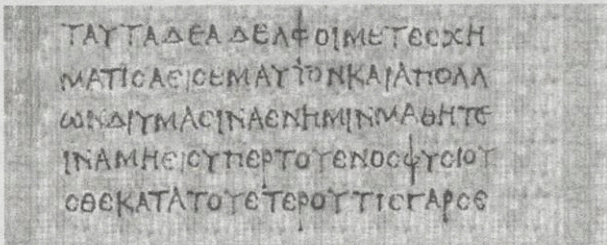 ΤΑΥΤΑΔΕΑΔΕΛΦΟΙΜΕΤΕϹΧΗ
ΜΑΤΙϹΑΕΙϹΕΜΑΥΤΟΝΚΑΙΑΠΟΛΛ
ωΝΔΙΥΜΑϹΙΝΑΕΝΗΜΙΝΜΑΘΗΤΕ
ΙΝΑΜΗΕΙϹΥΠΕΡΤΟΥΕΝΟϹΦΥϹΙΟΥ
ϹΘΕΚΑΤΑΤΟΥΕΤΕΡΟΥΤΙϹΓΑΡϹΕ